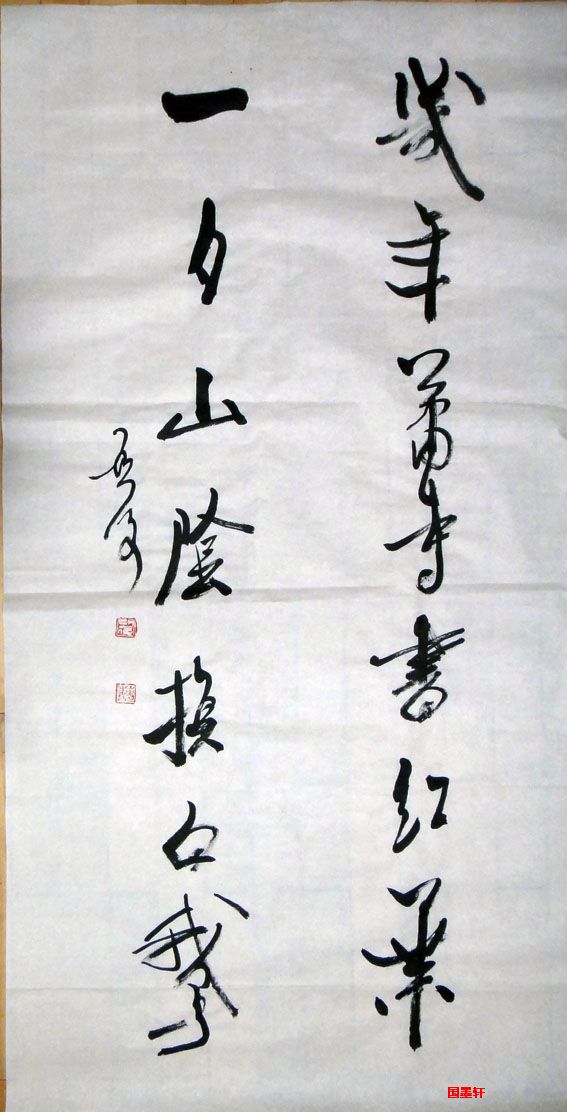 幾年蕭寺書紅葉
一夕山陰換白鵝
国墨轩